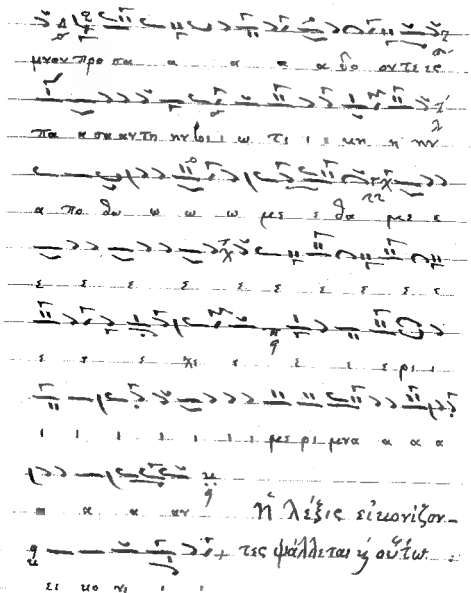 μνον προ σα α α α α δο οντε ες
πα α σα αν τη ην βι ι ω τι ι ι κη η ην
α πο θω ω ω ω με ε θα με ε
ε ε ε ε ε ε ε ε ε
ε ε ε χε ε ε ε ε ρι ι
ι ι ι ι ι ι ι με ρι μνα α α α
α α α αν ἡ λέξις εἰκονίζον-
τες ψάλλεται ϗ οὕτω
ει κο νι ι ι